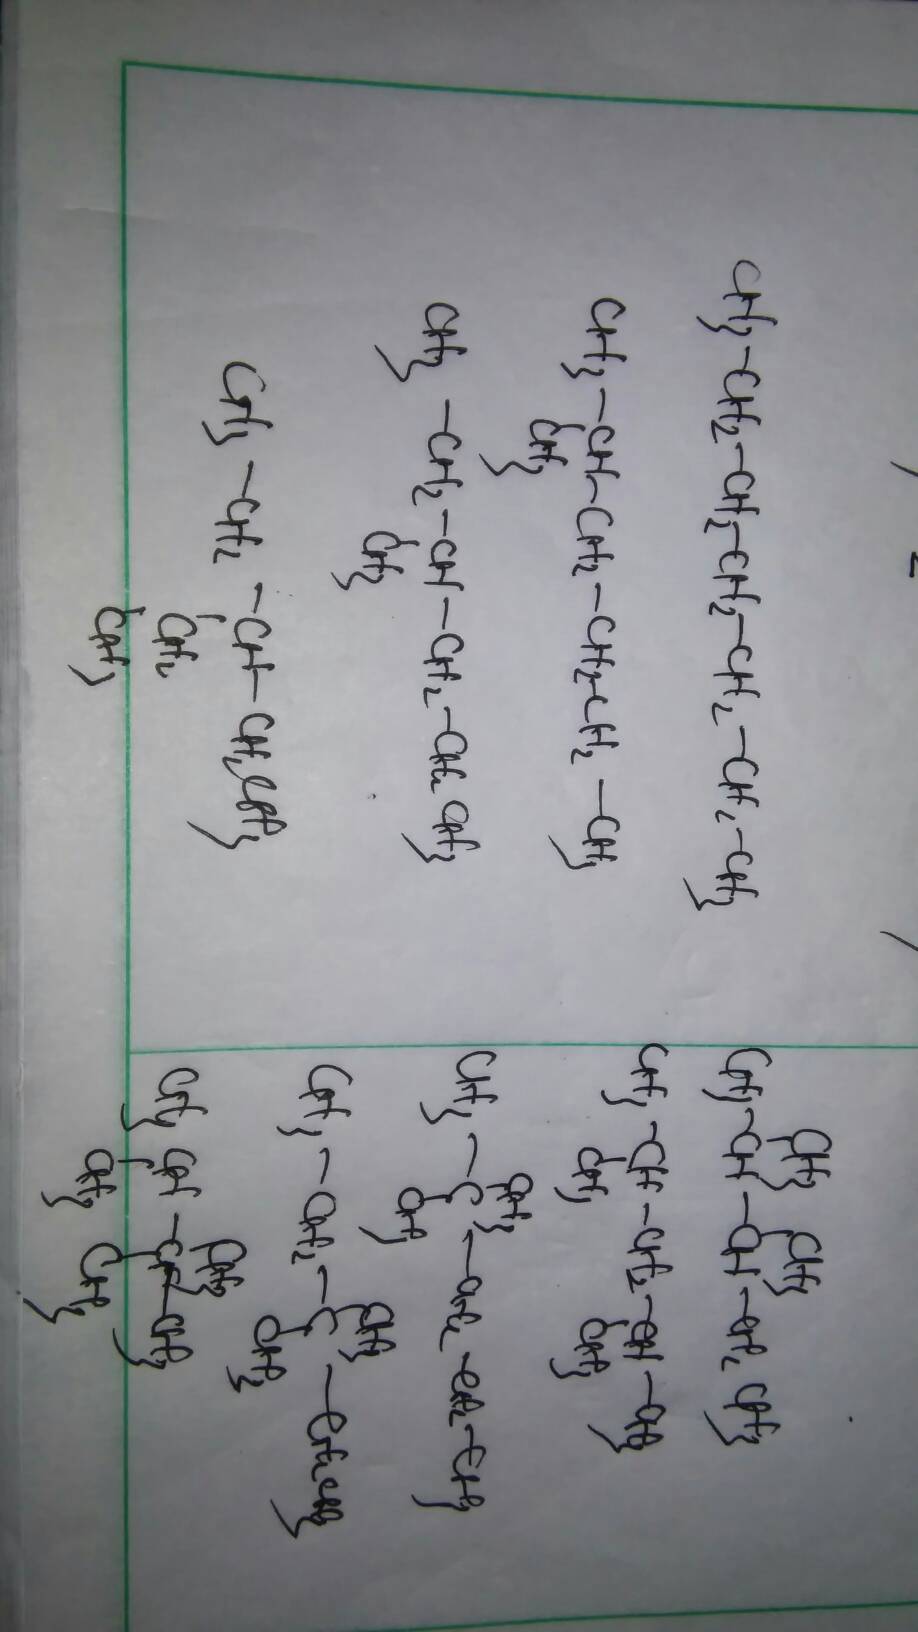 CH3-CH2-CH2-CH2-CH2-CH2-CH3
CH3-CH-CH2-CH2-CH2-CH3
CH3
CH3-CH2-CH-CH2-CH2CH3
CH3
CH3-CH2-CH-CH2CH3
CH2
CH3
CH3 CH3
CH3-CH-CH-CH2CH3
CH3-CH-CH2-CH-CH3
CH3 CH3
CH3
CH3-C-CH2-CH2-CH3
CH3
CH3
CH3-CH2-C-CH2CH3
CH3
CH3
CH3CH-C-CH3
CH3 CH3